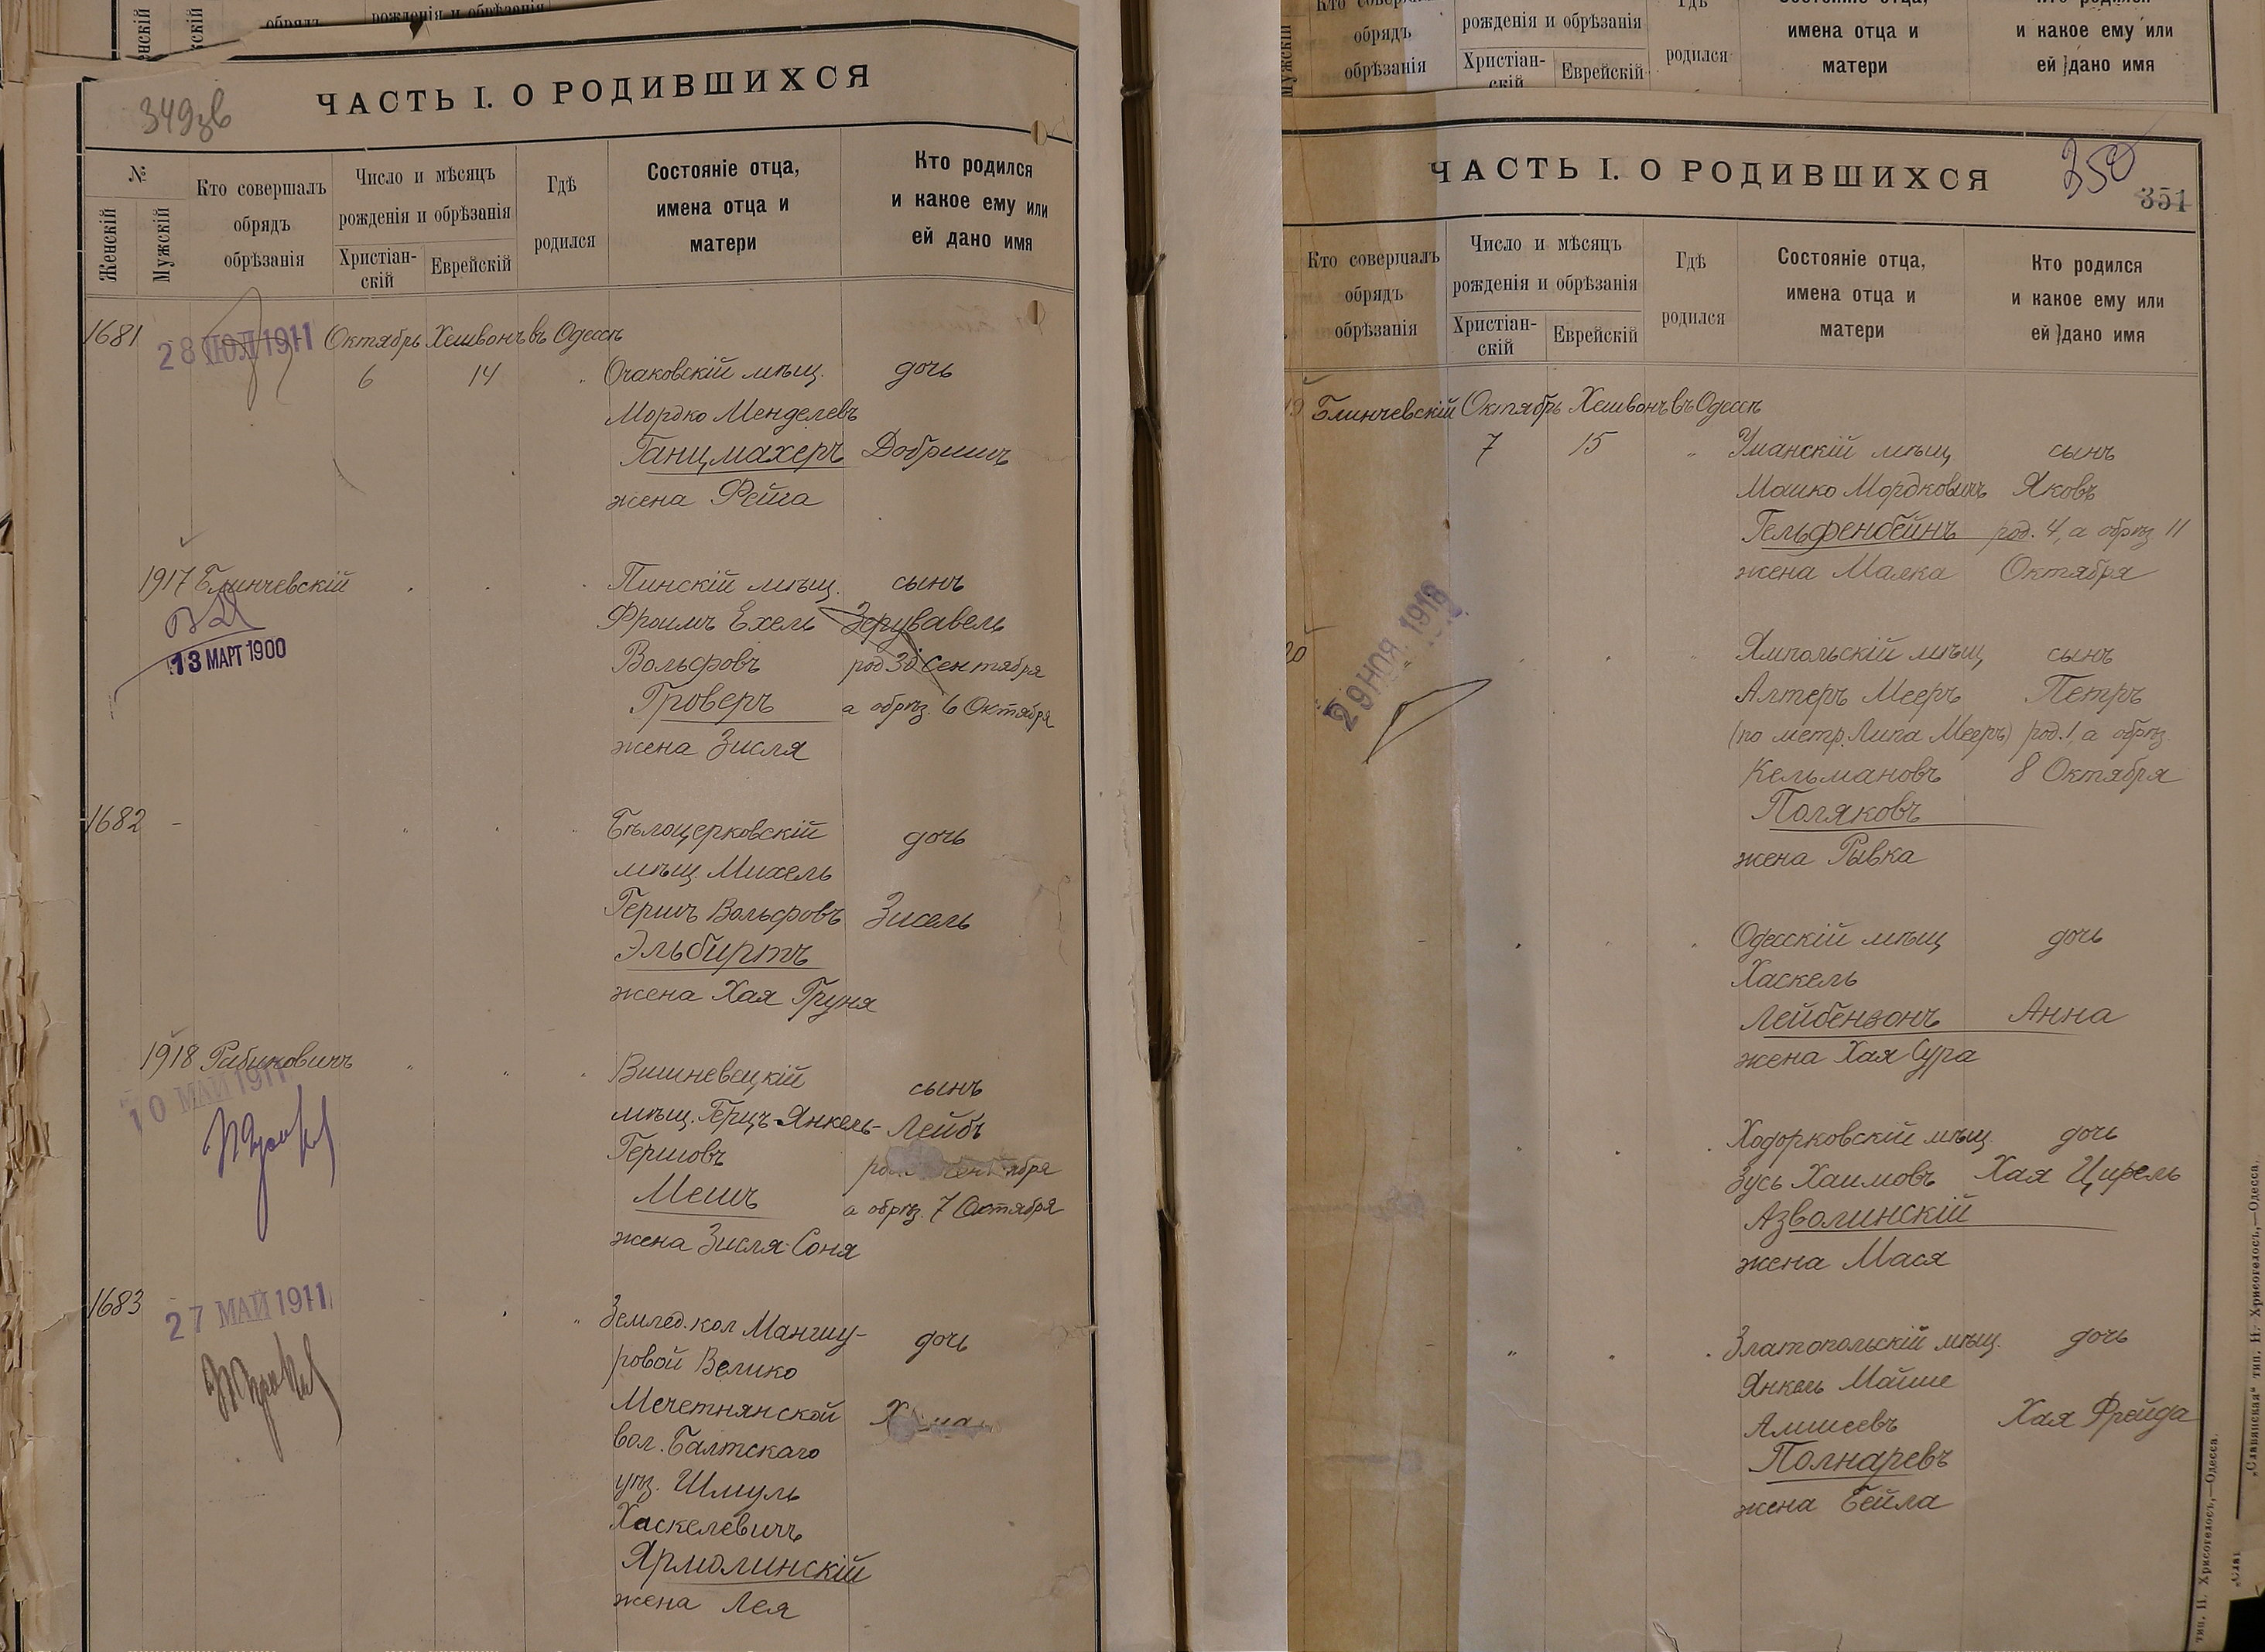 обрядъ
рожденія и обрѣзанія
349зв
ЧАСТЬ I. О РОДИВШИХСЯ
№
Женскій
Мужскій
Кто совершалъ
обрядъ
обрѣзанія
Число и мѣсяцъ
рожденія и обрѣзанія
Христіан-
скій
Еврейскій
Гдѣ
родился
Состояніе отца,
имена отца и
матери
Кто родился
и какое ему или
ей дано имя
1681
28 ІЮЛ 1911
Октябрь Хешвонъ въ Одессѣ
6 14 " Очаковскій мѣщ. дочь
Мордко Менделевъ
Ганцмахеръ Добришъ
жена Рейза
1917 Блинчевскій
13 МАРТ 1900
Пинскій мѣщ. сынъ
Фроимъ Ехель Зерувавель
Вольфовъ род 30 Сентября
Гроверъ а обрѣз. 6 Октября
жена Зисля
1682 -
Бѣлоцерковскій дочь
мѣщ. Михель
Гершъ Вольфовъ Зисель
Эльбиртъ
жена Хая Груня
1918 Рабиновичъ
10 МАЙ 1911
Вишневецкій сынъ
мѣщ. Герцъ-Янкель- Лейбъ
Гершовъ
Мешъ а обрѣз. 7 Октября
жена Зисля-Соня
1683
27 МАЙ 1911
Землед. кол Манжу-
ровой Велико дочь
Мечетнянской
вол. Балтскаго
уѣз. Шмуль
Хаскелевичъ
Ярмолинскій
жена Лея
обрядъ
обрѣзанія
рожденія и обрѣзанія
Христіан-
скій
Еврейскій
Гдѣ
родился
Состояніе отца,
имена отца и
матери
и какое ему или
ей дано имя
ЧАСТЬ I. О РОДИВШИХСЯ
350
351
Кто совершалъ
обрядъ
обрѣзанія
Число и мѣсяцъ
рожденія и обрѣзанія
Христіан-
скій
Еврейскій
Гдѣ
родился
Состояніе отца,
имена отца и
матери
Кто родился
и какое ему или
ей дано имя
Блинчевскій Октябрь Хешвонъ въ Одессѣ
7 15 " Уманскій мѣщ. сынъ
Мошко Мордковичъ Яковъ
Гельфенбейнъ род. 4, а обрѣз 11
жена Малка Октября
20
29 НОЯ. 1913
Ямпольскій мѣщ. сынъ
Алтеръ Мееръ Петръ
(по метр. Липа Мееръ) род. 1, а обрѣз.
Кельмановъ 8 Октября
Поляковъ
жена Рывка
Одесскій мѣщ дочь
Хаскель
Лейбензонъ Анна
жена Хая Сура
Ходорковскій мѣщ. дочь
Зусь Хаимовъ Хая Цирель
Азволинскій
жена Мася
Златопольскій мѣщ. дочь
Янкель Мойше
Амшеевъ Хая Фрейда
Полнаревъ
жена Бейла
„Славянская“ тип. Н. Хрисогелосъ,—Одесса.
тип. Н. Хрисогелосъ,—Одесса.